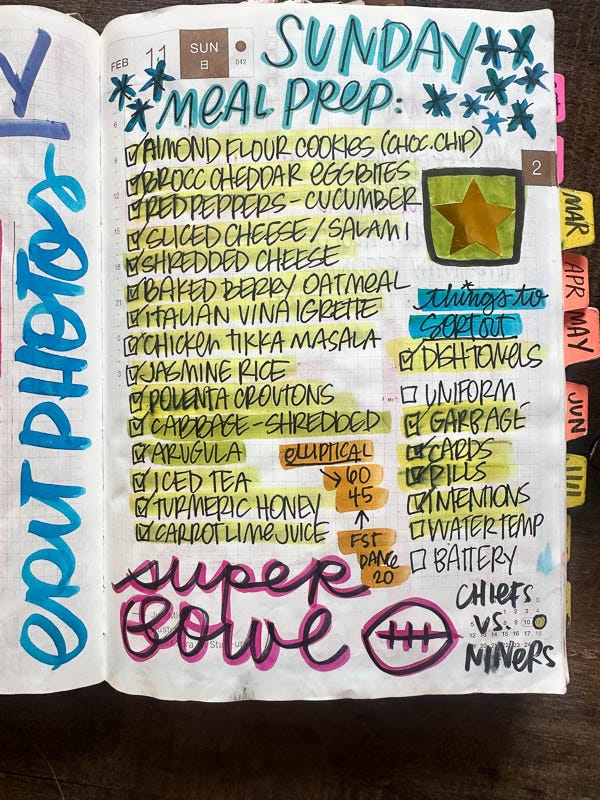 Y
ERIJ PHOTOS
FEB 11 SUN
日
042
SUNDAY
MEAL PREP:
ALMOND FLOUR COOKIES (CHOC.CHIP)
BROCC CHEDDAR EGGBITES
RED PEPPERS - CUCUMBER
SLICED CHEESE / SALAMI
SHREDDED CHEESE
BAKED BERRY OATMEAL
ITALIAN VINAIGRETTE
CHICKEN TIKKA MASALA
JASMINE RICE
POLENTA CROUTONS
CABBAGE - SHREDDED
ARUGULA
ICED TEA
TURMERIC HONEY
CARROT LIME JUICE
ELLIPTICAL
60
45
FST
DANCE
20
things to
sort out
DISHTOWELS
UNIFORM
GARBAGE
CARDS
PILLS
INTENTIONS
WATER TEMP
BATTERY
super
bowl
CHIEFS
VS.
NINERS
2
MAR
APR
MAY
JUN